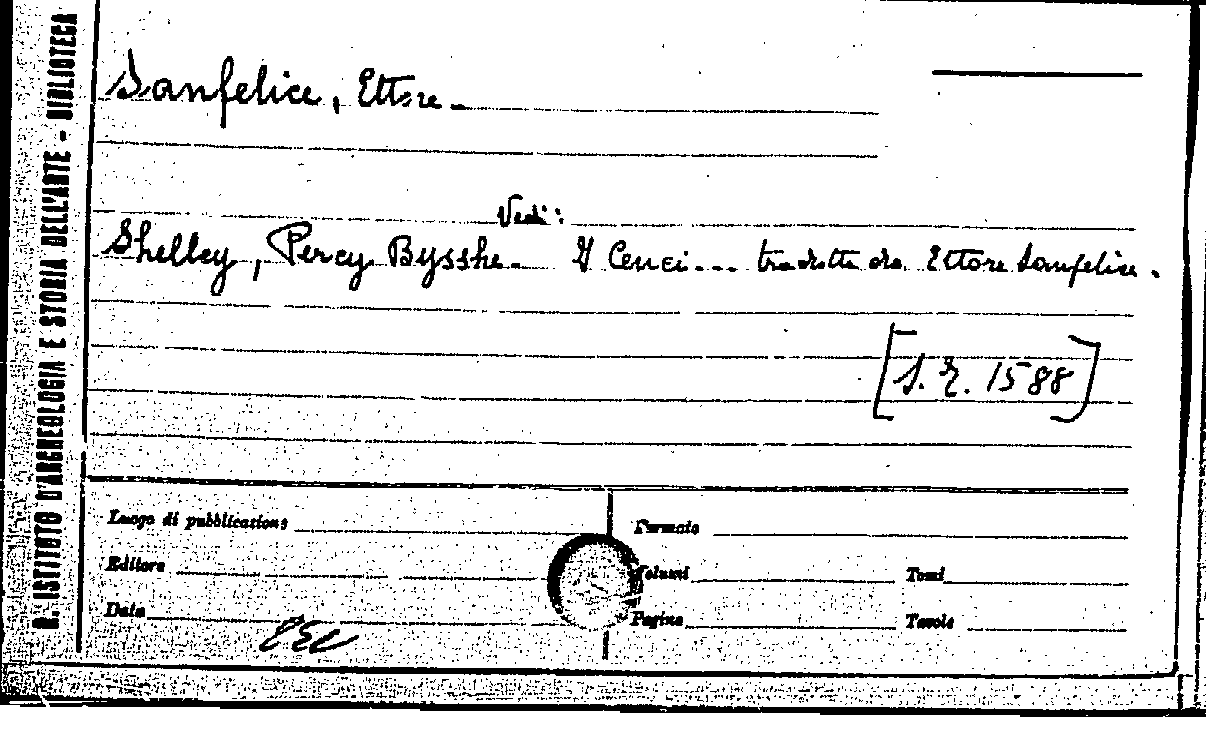 R. ISTITUTO D'ARCHEOLOGIA E STORIA DELL'ARTE - BIBLIOTECA
Sanfelice, Ettore.
Vedi:
Shelley, Percy Bysshe. I Cenci... tradotti da Ettore Sanfelice.
[S. R. 1588]
Luogo di pubblicazione
Formato
Editore
Volumi
Tomi
Data
Pagine
Tavole